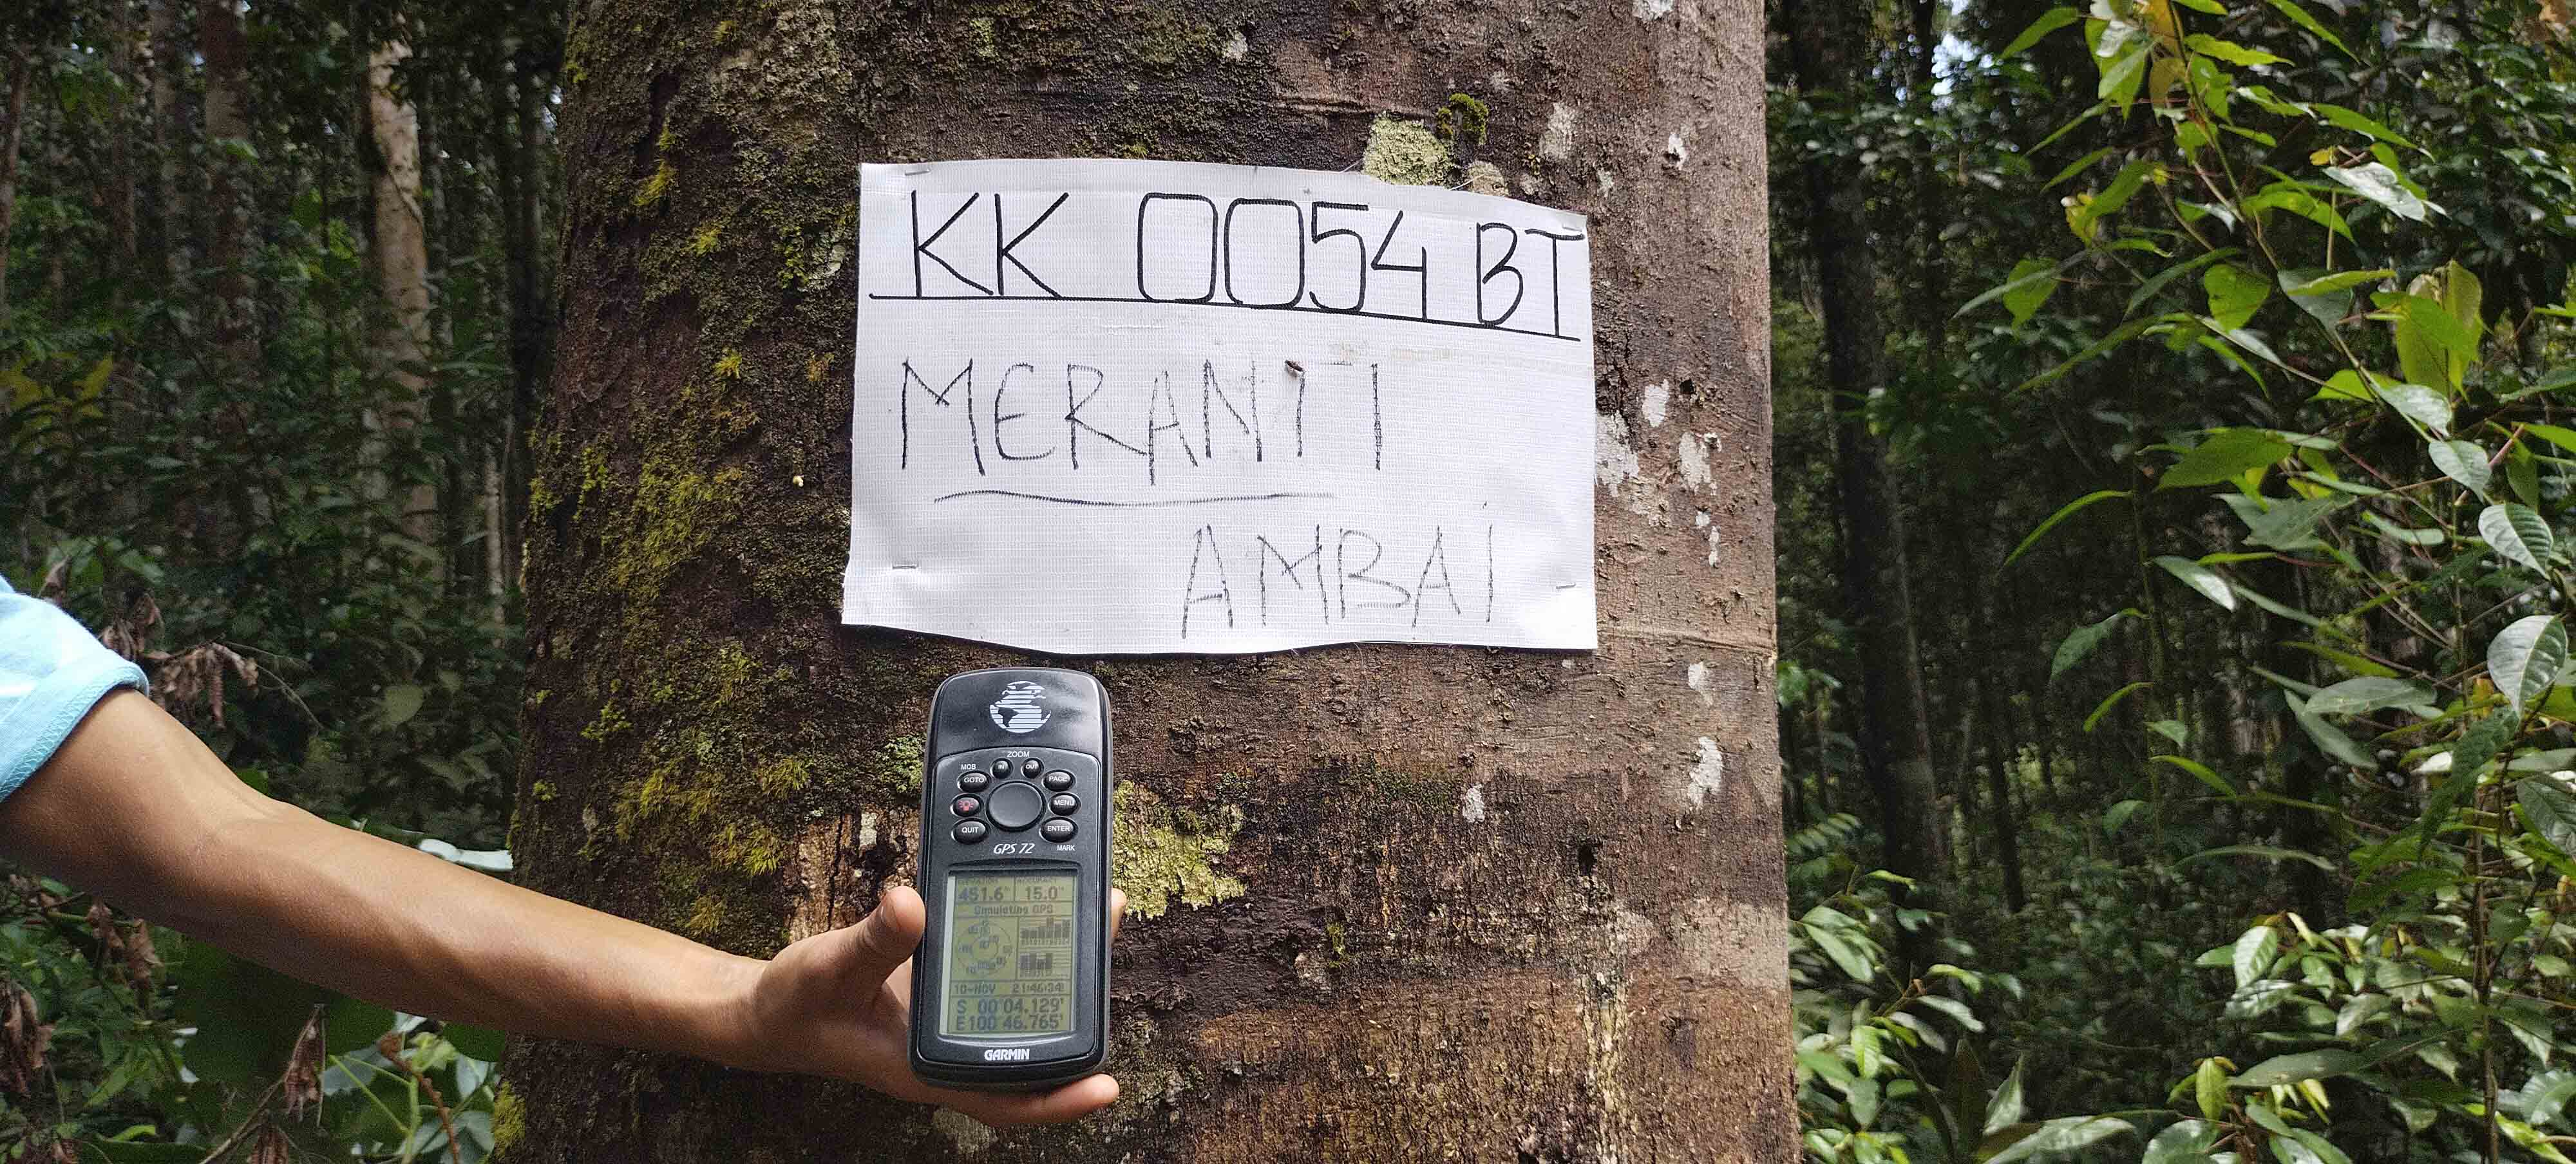 KK 0054 BT
MERANTI
AMBAI
ZOOM
MOB
IN OUT
GOTO PAGE
MENU
QUIT ENTER
GPS 72 MARK
451.6 15.0
Simulating GPS
10-NOV 21:46:34
S 00°04.129'
E100°46.765'
GARMIN